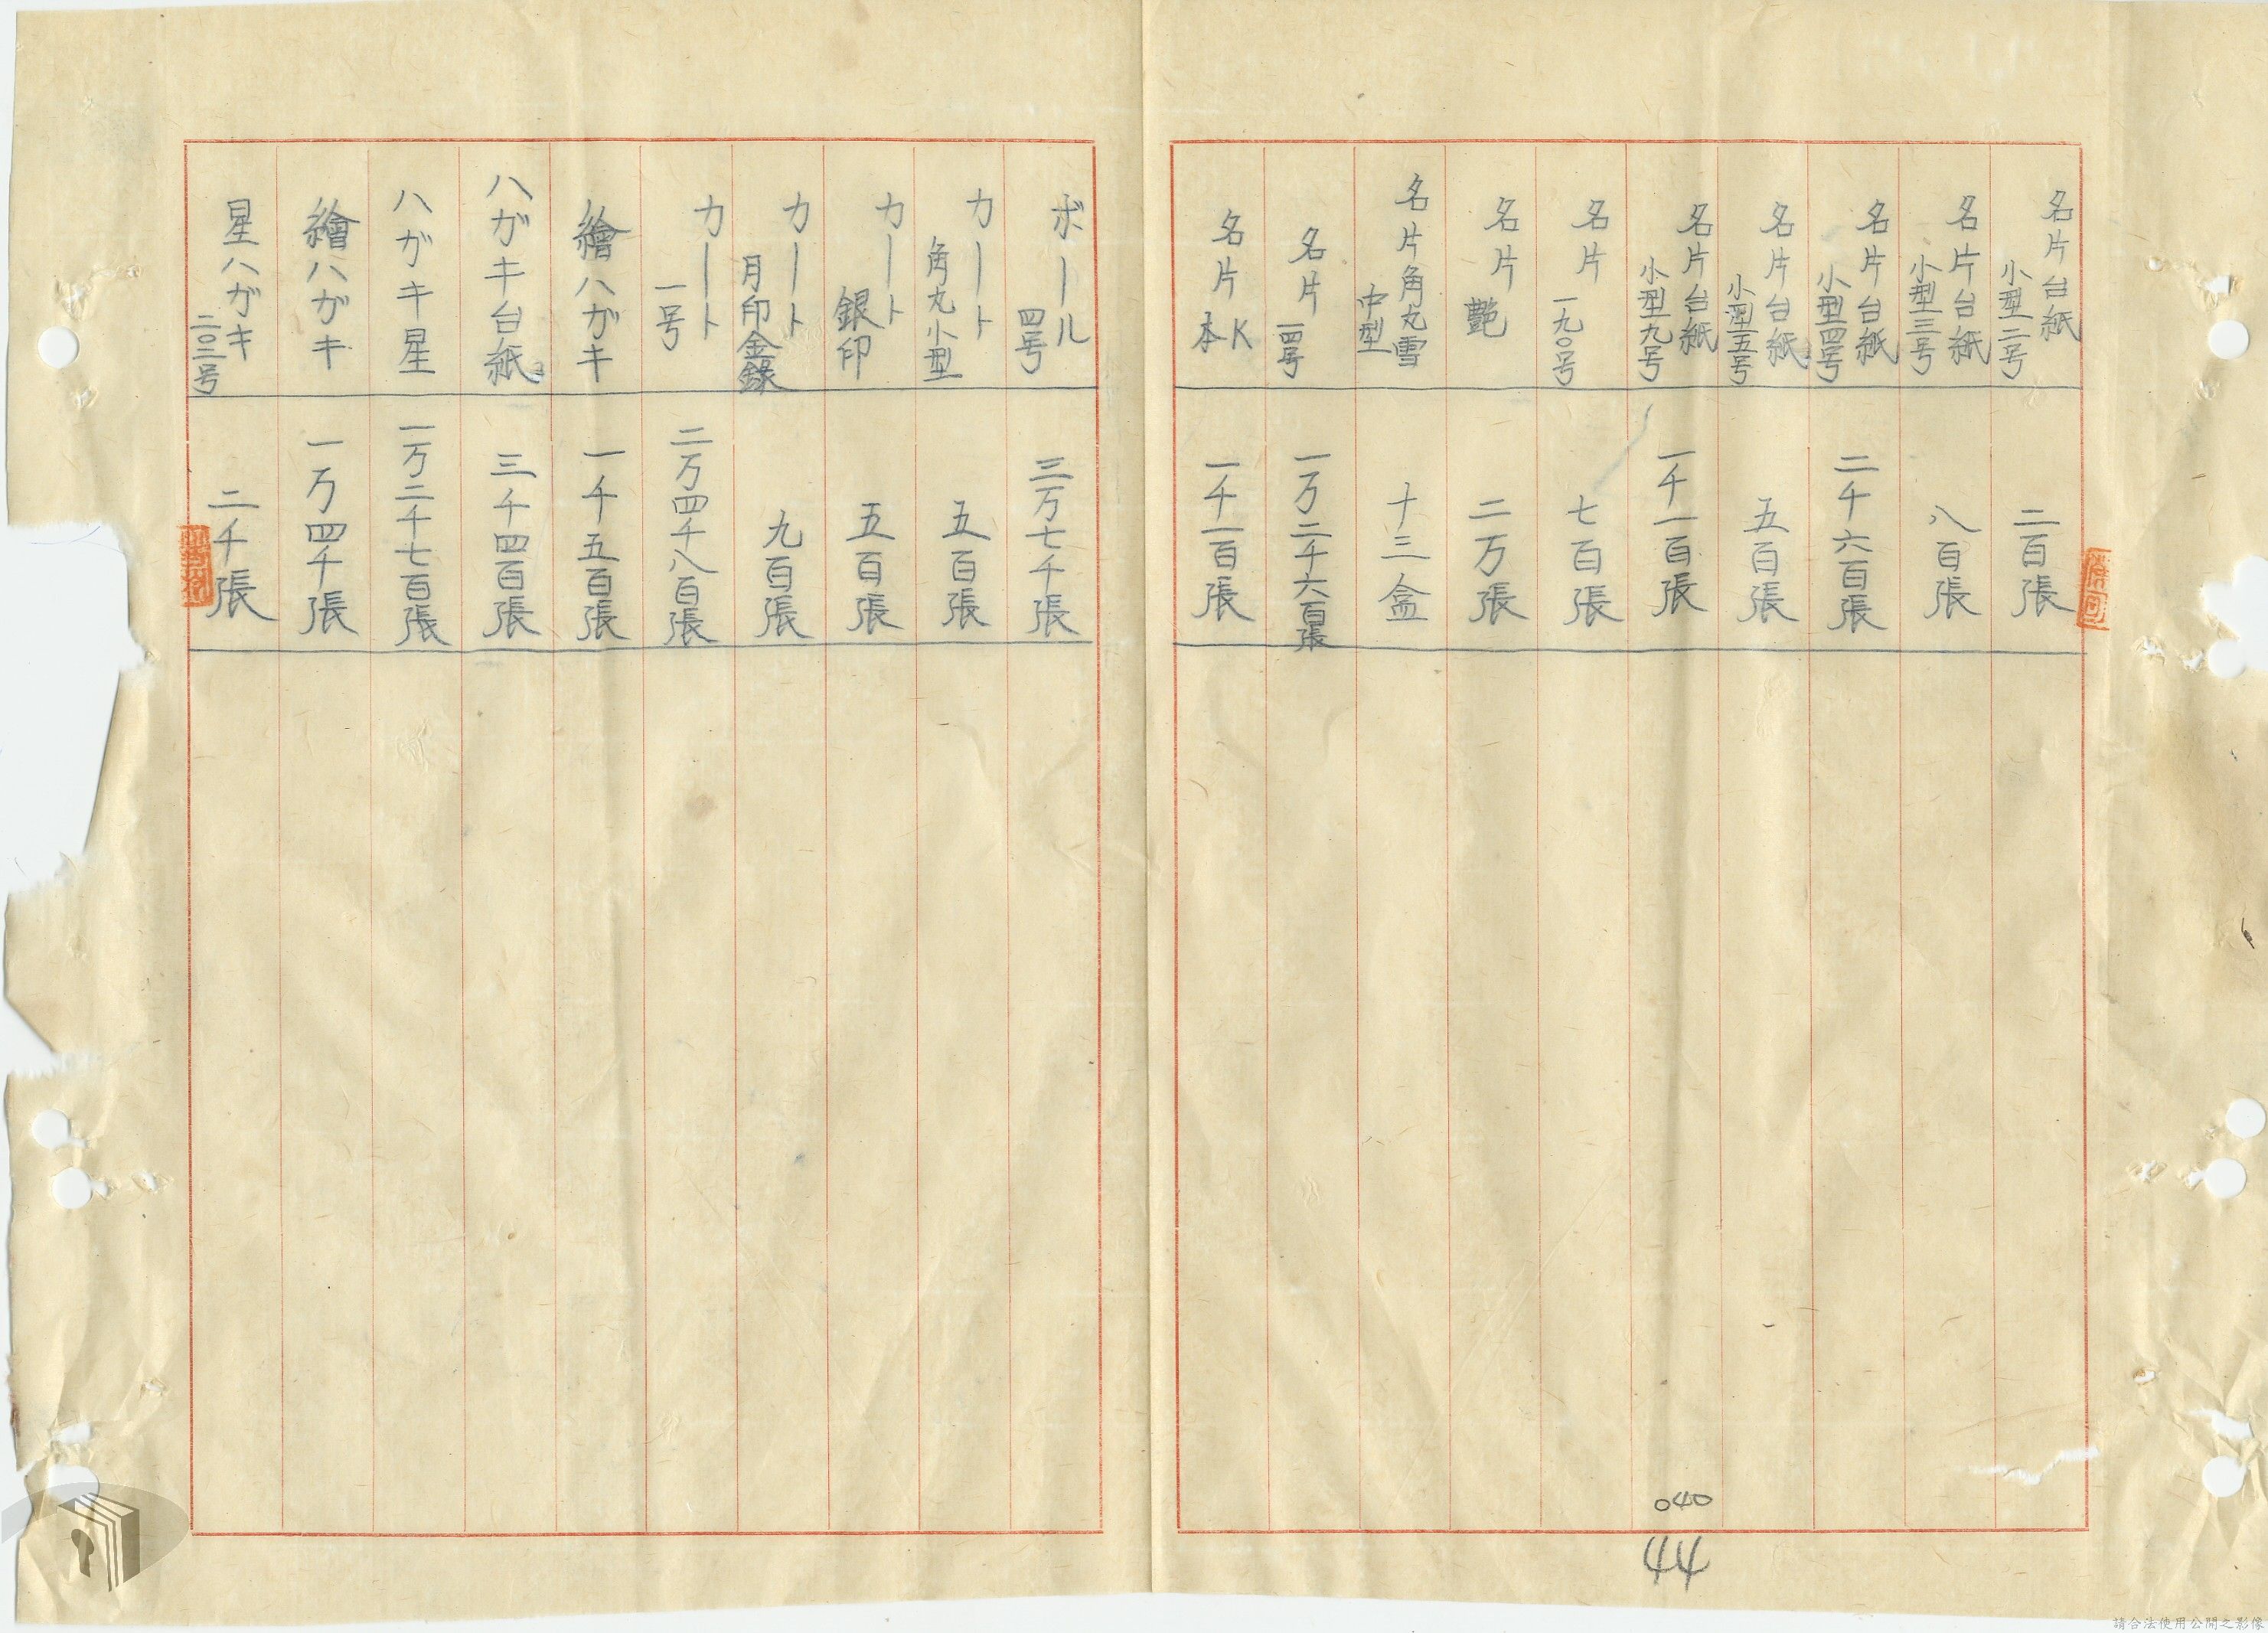 名片台紙 小型二号 二百張
名片台紙 小型三号 八百張
名片台紙 小型四号 二千六百張
名片台紙 小型五号 五百張
名片台紙 小型九号 一千一百張
名片 一九〇号 七百張
名片 艷 二万張
名片角丸雪 中型 十三盒
名片 一四号 一万二千六百張
名片K 本 一千一百張
ボール 四号 三万七千張
カート 角丸小型 五百張
カート 銀印 五百張
カート 月印金錄 九百張
カート 一号 二万四千八百張
繪ハガキ 一千五百張
ハガキ台紙 三千四百張
ハガキ星 一万二千七百張
繪ハガキ 一万四千張
星ハガキ 二〇二号 二千張
040
44
請合法使用公開之影像